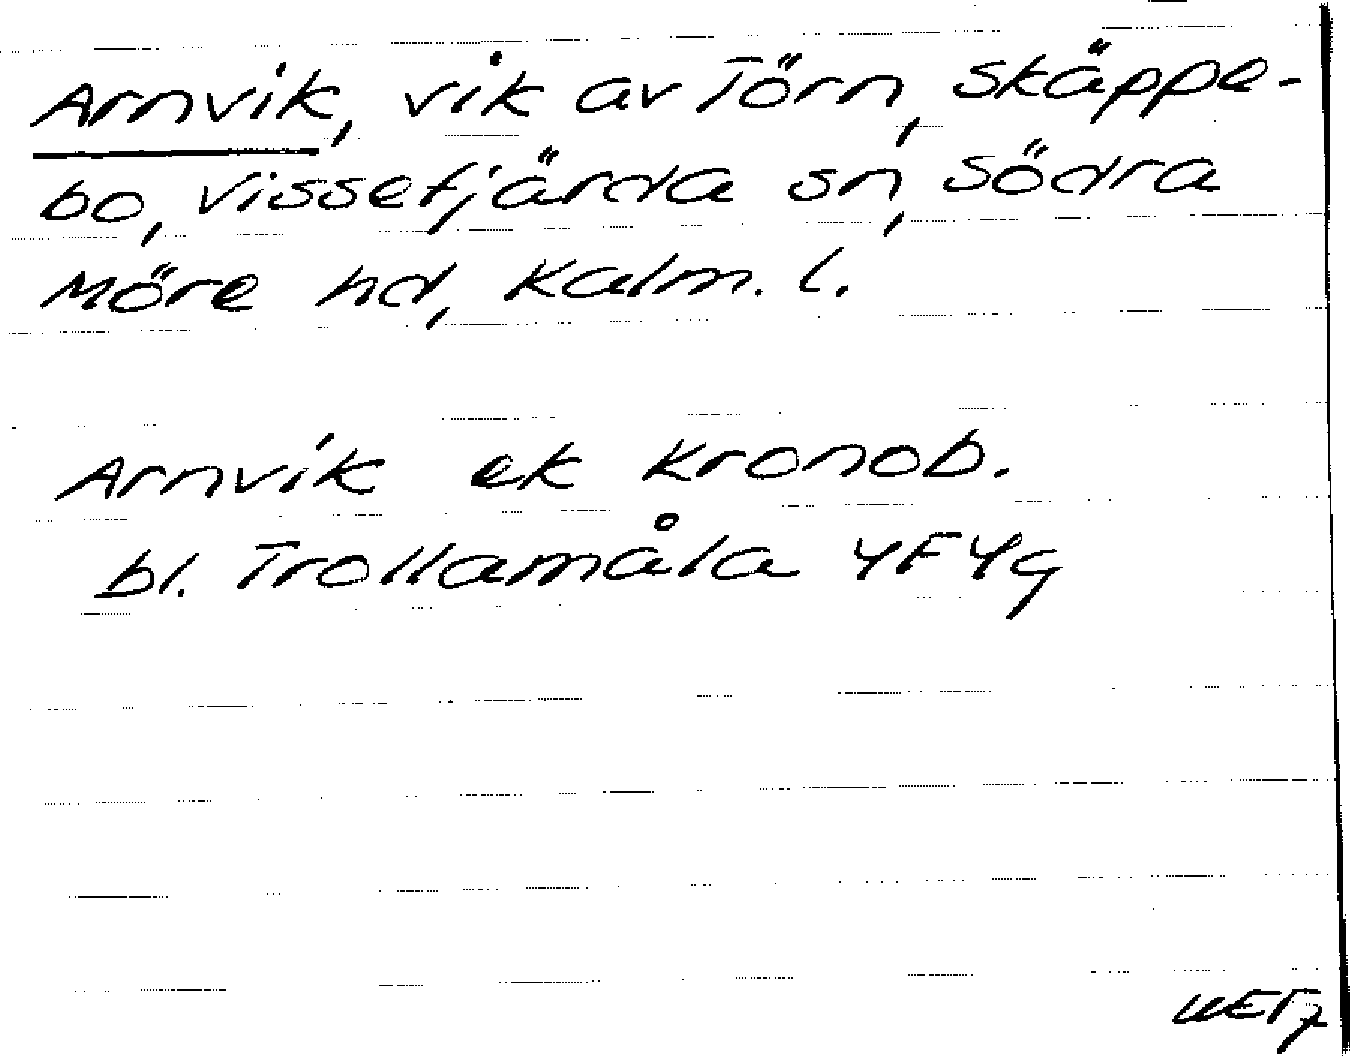 Arnvik, vik av Törn, Skäppe-
bo, Vissefjärda sn, Södra
Möre hd, Kalm. l.
Arnvik ek Kronob.
bl. Trollamåla 4F4g